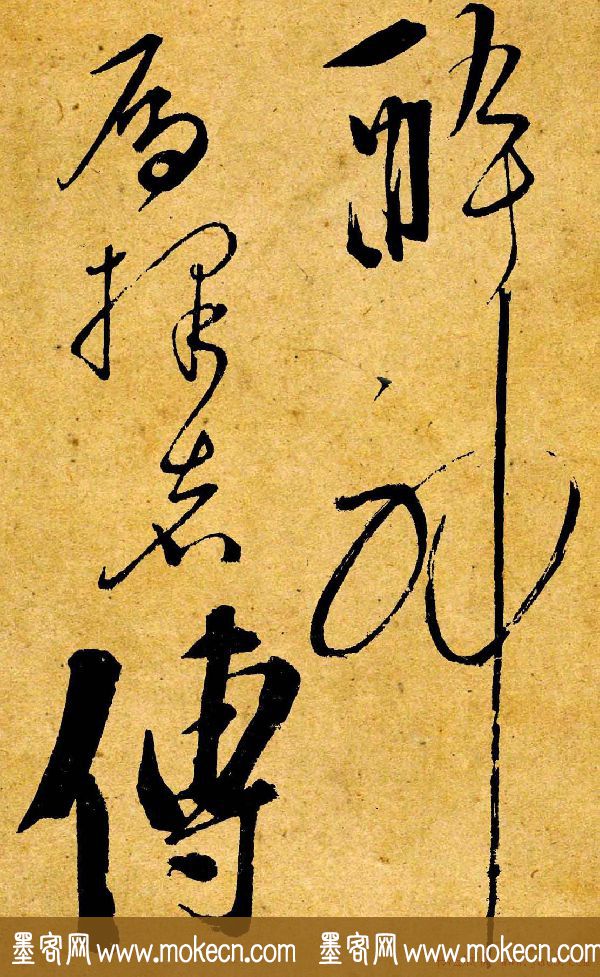 醉神
為者傳
墨客网 www.mokecn.com 墨客网 www.mokecn.com